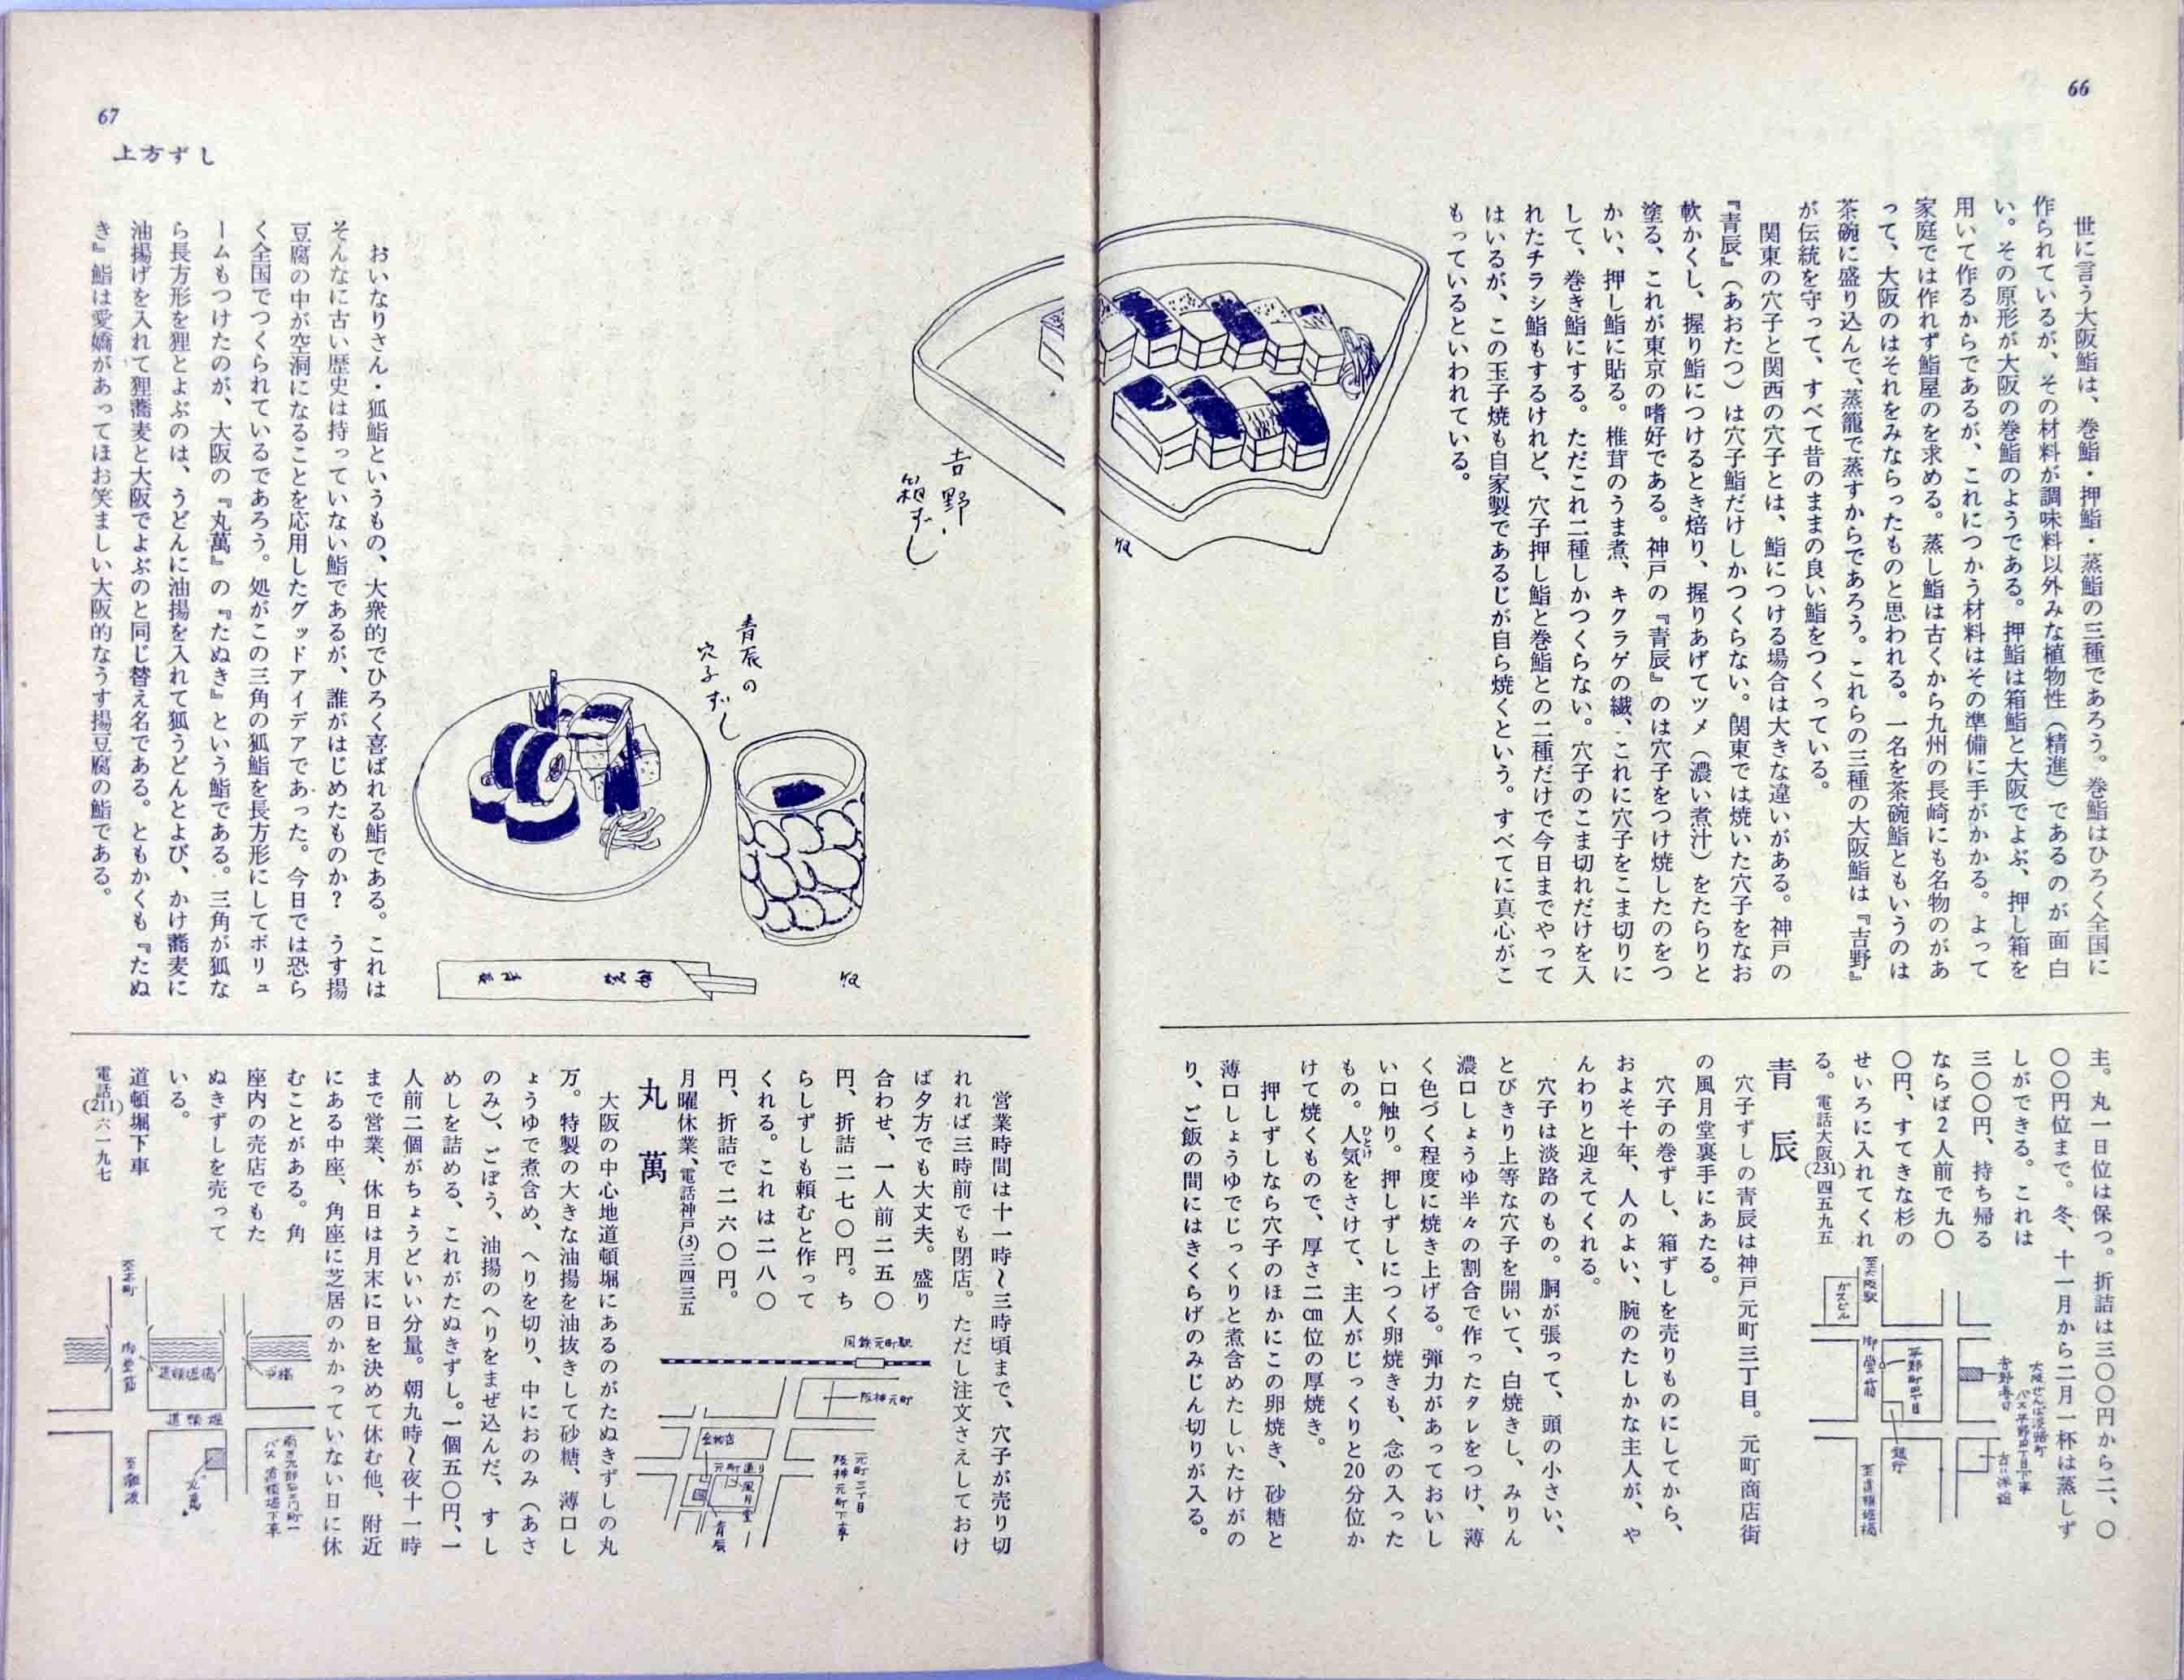 66
世に言う大阪鮨は、巻鮨・押鮨・蒸鮨の三種であろう。巻鮨はひろく全国に
作られているが、その材料が調味料以外みな植物性（精進）であるのが面白
い。その原形が大阪の巻鮨のようである。押鮨は箱鮨と大阪でよぶ、押し箱を
用いて作るからであるが、これにつかう材料はその準備に手がかかる。よって
家庭では作れず鮨屋のを求める。蒸し鮨は古くから九州の長崎にも名物のがあ
って、大阪のはそれをみならったものと思われる。一名を茶碗鮨ともいうのは
茶碗に盛り込んで、蒸籠で蒸すからであろう。これらの三種の大阪鮨は『吉野』
が伝統を守って、すべて昔のままの良い鮨をつくっている。
関東の穴子と関西の穴子とは、鮨につける場合は大きな違いがある。神戸の
『青辰』（あおたつ）は穴子鮨だけしかつくらない。関東では焼いた穴子をなお
軟かくし、握り鮨につけるとき焙り、握りあげてツメ（濃い煮汁）をたらりと
塗る、これが東京の嗜好である。神戸の『青辰』のは穴子をつけ焼したのをつ
かい、押し鮨に貼る。椎茸のうま煮、キクラゲの繊、これに穴子をこま切りに
して、巻き鮨にする。ただこれ二種しかつくらない。穴子のこま切れだけを入
れたチラシ鮨もするけれど、穴子押し鮨と巻鮨との二種だけで今日までやって
はいるが、この玉子焼も自家製であるじが自ら焼くという。すべてに真心がこ
もっているといわれている。
主。丸一日位は保つ。折詰は三〇〇円から二、〇
〇〇円位まで。冬、十一月から二月一杯は蒸しず
しができる。これは
三〇〇円、持ち帰る
ならば2人前で九〇
〇円、すてきな杉の
せいろに入れてくれ
る。電話大阪(231)四五九五
至大阪駅
ガスビル
御堂筋
平野町四丁目
銀行
至道頓堀橋
青辰
穴子ずしの青辰は神戸元町三丁目。元町商店街
の風月堂裏手にあたる。
穴子の巻ずし、箱ずしを売りものにしてから、
およそ十年、人のよい、腕のたしかな主人が、や
んわりと迎えてくれる。
穴子は淡路のもの。胴が張って、頭の小さい、
とびきり上等な穴子を開いて、白焼きし、みりん
濃口しょうゆ半々の割合で作ったタレをつけ、薄
く色づく程度に焼き上げる。弾力があっておいし
い口触り。押しずしにつく卵焼きも、念の入った
もの。人気をさけて、主人がじっくりと20分位か
ひとけ
けて焼くもので、厚さ二cm位の厚焼き。
押しずしなら穴子のほかにこの卵焼き、砂糖と
薄口しょうゆでじっくりと煮含めたしいたけがの
り、ご飯の間にはきくらげのみじん切りが入る。
67
上方ずし
吉野、
箱ずし
青辰の
穴子ずし
おいなりさん・狐鮨というもの、大衆的でひろく喜ばれる鮨である。これは
そんなに古い歴史は持っていない鮨であるが、誰がはじめたものか？　うす揚
豆腐の中が空洞になることを応用したグッドアイデアであった。今日では恐ら
く全国でつくられているであろう。処がこの三角の狐鮨を長方形にしてボリュ
ームもつけたのが、大阪の『丸萬』の『たぬき』という鮨である。三角が狐な
ら長方形を狸とよぶのは、うどんに油揚を入れて狐うどんとよび、かけ蕎麦に
油揚げを入れて狸蕎麦と大阪でよぶのと同じ替え名である。ともかくも『たぬ
き』鮨は愛嬌があってほお笑ましい大阪的なうす揚豆腐の鮨である。
営業時間は十一時〜三時頃まで、穴子が売り切
れれば三時前でも閉店。ただし注文さえしておけ
ば夕方でも大丈夫。盛り
合わせ、一人前二五〇
円、折詰二七〇円。ち
らしずしも頼むと作って
くれる。これは二八〇
円、折詰で二六〇円。
月曜休業、電話神戸(3)三四三五
国鉄元町駅
阪神元町
元町通り
風月堂
青辰
元町三丁目
阪神元町下車
丸萬
大阪の中心地道頓堀にあるのがたぬきずしの丸
万。特製の大きな油揚を油抜きして砂糖、薄口し
ょうゆで煮含め、へりを切り、中におのみ（あさ
のみ）、ごぼう、油揚のへりをまぜ込んだ、すし
めしを詰める、これがたぬきずし。一個五〇円、一
人前二個がちょうどいい分量。朝九時〜夜十一時
まで営業、休日は月末に日を決めて休む他、附近
にある中座、角座に芝居のかかっていない日に休
むことがある。角
座内の売店でもた
ぬきずしを売って
いる。
道頓堀下車
電話(211)六一九七
至本町
御堂筋
道頓堀橋
戎橋
道頓堀
至難波
丸萬
バス道頓堀下車